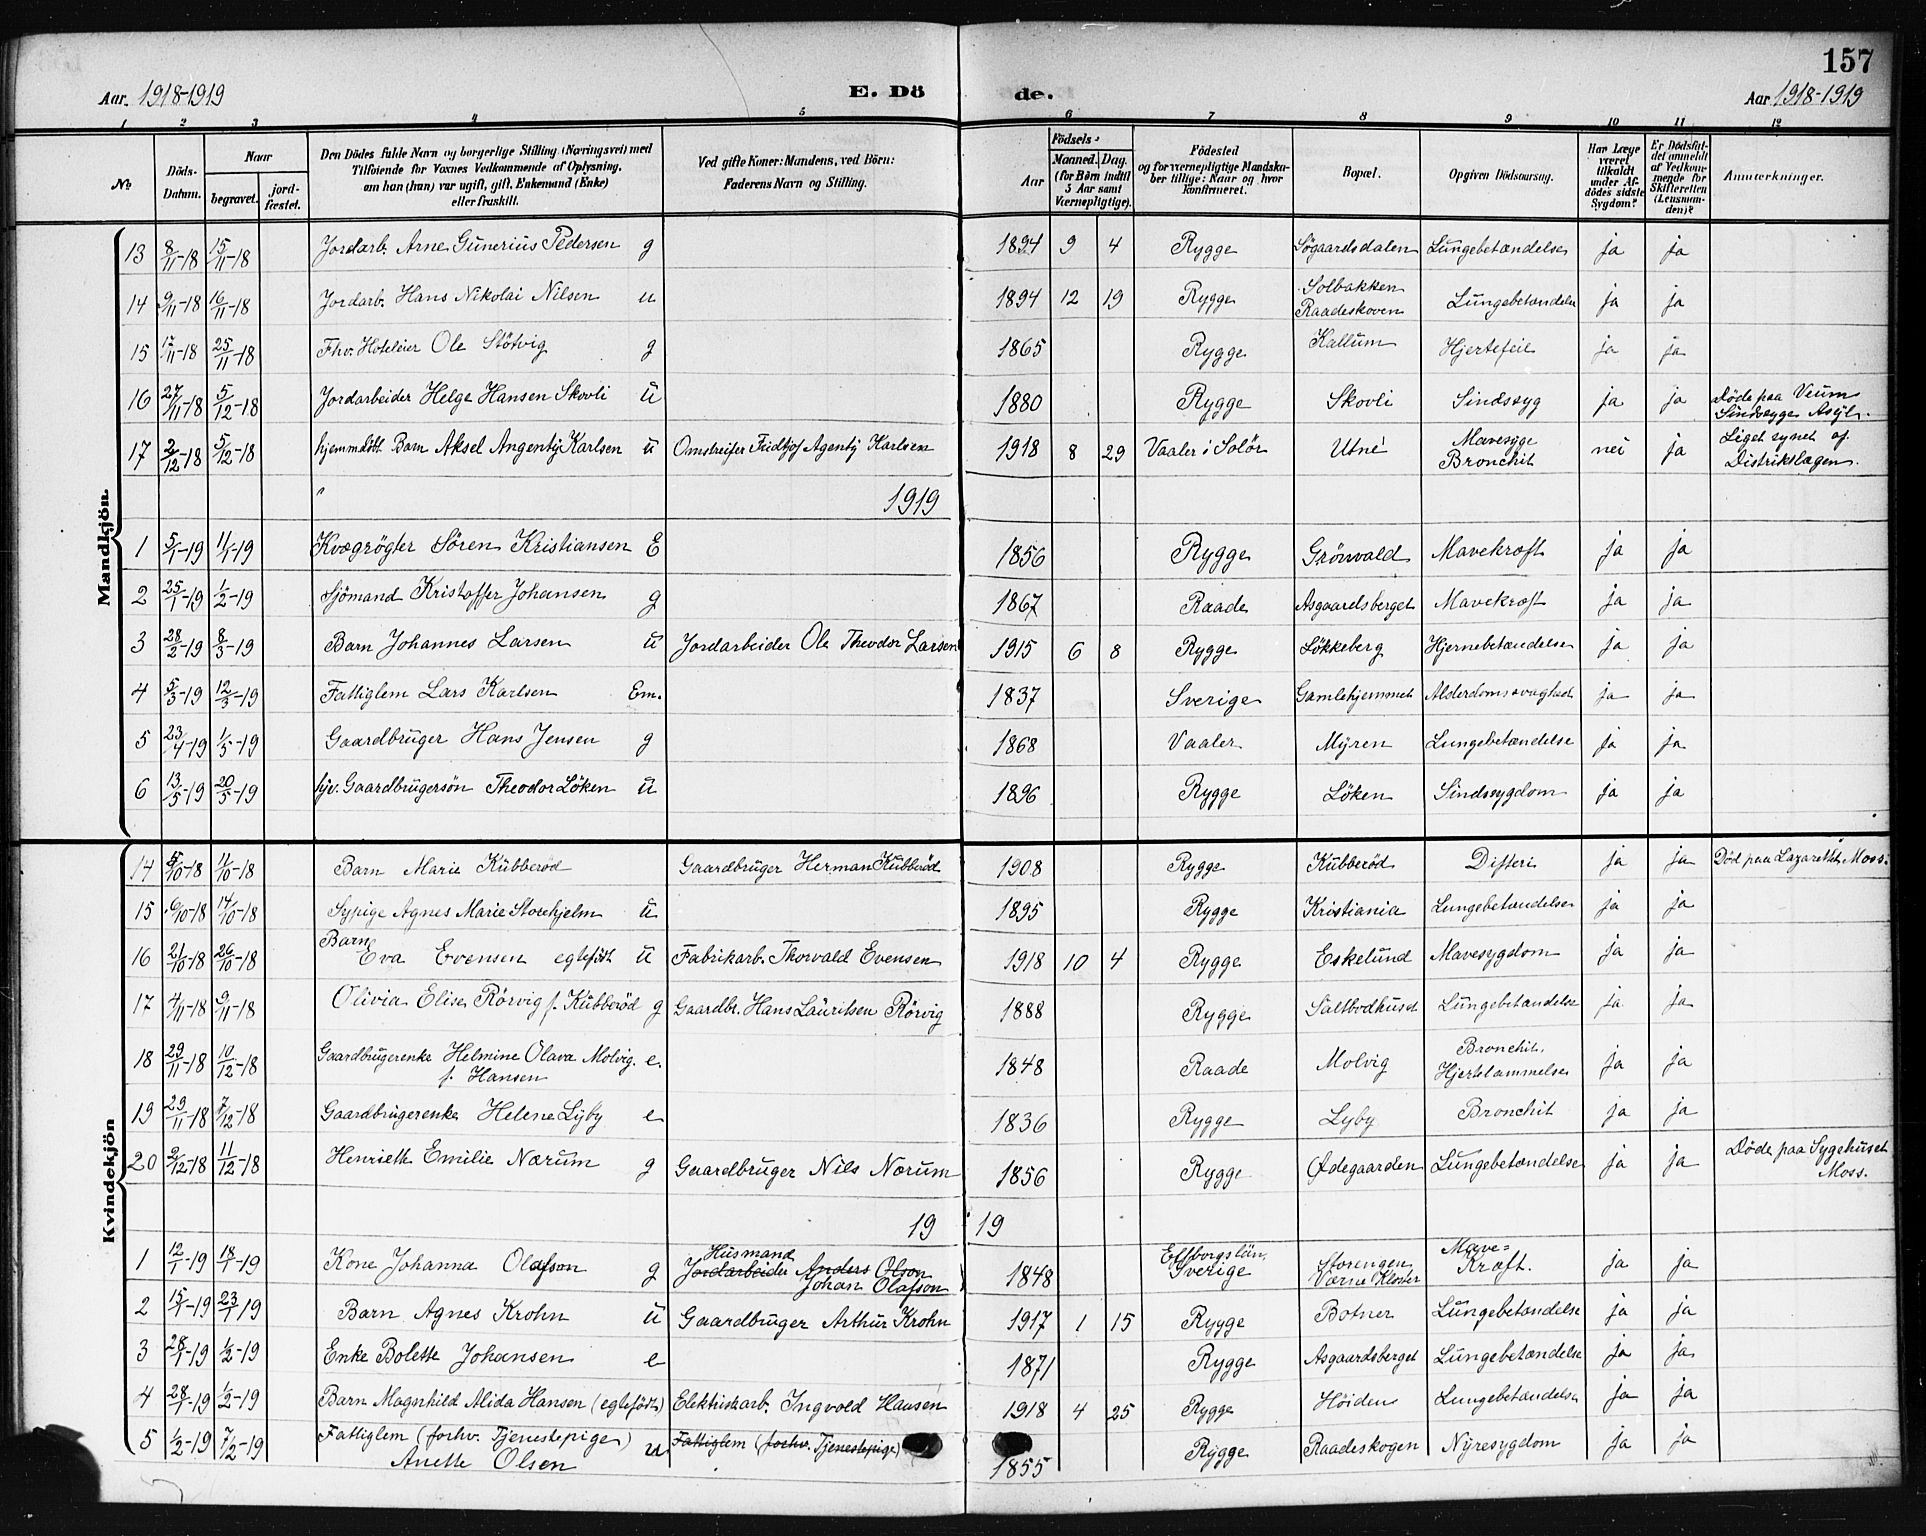 157
Aar. 1918-1919 E. Dö de. Aar 1918-1919
1 2 3 4 5 6 7 8 9 10 11 12
No.
Döds-Datum.
Naar
begravet.
jord-fæstet.
Den Dödes fulde Navn og borgerlige Stilling (Næringsvei) med
Tilföiende for Voxnes Vedkommende af Oplysning,
om han (hun) var ugift, gift, Enkemand (Enke)
eller fraskilt.
Ved gifte Koner: Mandens, ved Börn:
Faderens Navn og Stilling.
Födsels-
Aar
Maaned. Dag.
(for Börn indtil
5 Aar samt
Værnepligtige).
Födested
og for værnepligtige Mandska-
ber tillige: Naar og hvor
konfirmeret.
Bopæl.
Opgiven Dödsaarsag.
Har Læge
været
tilkaldt
under Af-
dödes sidste
Sygdom?
Er Dödsfal-
det anmeldt
af Vedkom-
mende for
Skifteretten
(Lensman-
den)?
Anmerkninger.
Mandkjön.
13 8/11-18 15/11-18 Jordarb. Arne Gunerius Pedersen g 1894 9 4 Rygge Søgaardsdalen Lungebetændelse ja ja
14 9/11-18 16/11-18 Jordarb. Hans Nikolai Nilsen u 1894 12 19 Rygge Solbakken Raadeskoven Lungebetændelse ja ja
15 17/11-18 25/11-18 Fhv. Hoteleier Ole Stötvig g 1865 Rygge Kallum Hjertefeil ja ja
16 27/11-18 5/12-18 Jordarbeider Helge Hansen Skovli u 1880 Rygge Skovli Sindssyg ja ja Døde paa Veum Sindssyge Asyl.
17 2/12-18 5/12-18 hjemmdøbt Barn Aksel Angentÿ Karlsen u Omstreifer Fridtjof Agentÿ Karlsen 1918 8 29 Vaaler i Solør Utne Mavesyge Bronchit nei ja Liget synet af Distriktslægen.
1919
1 5/1-19 11/1-19 Kvægrögter Sören Kristiansen E 1856 Rygge Grönvald Mavekræft ja ja
2 25/1-19 1/2-19 Sjömand Kristoffer Johansen g 1867 Raade Asgaardsberget Mavekræft ja ja
3 28/2-19 8/3-19 Barn Johannes Larsen u Jordarbeider Ole Theodor Larsen 1915 6 8 Rygge Løkkeberg Hjernebetændelse ja ja
4 5/3-19 12/3-19 Fattiglem Lars Karlsen Em. 1837 Sverige Gamlehjemmet Alderdomssvaghed ja ja
5 23/4-19 1/5-19 Gaardbruger Hans Jensen g 1868 Vaaler Myren Lungebetændelse ja ja
6 13/5-19 20/5-19 Gaardbrugersön Theodor Löken u 1896 Rygge Löken Sindssygdom ja ja
Kvindekjön
14 5/10-18 11/10-18 Barn Marie Kubberød Gaardbruger Herman Kubberød 1908 Rygge Kubberød Difteri ja ja Død paa Lazarettet i Moss.
15 6/10-18 14/10-18 Sypige Agnes Marie Storehjelm u 1895 Rygge Kristiania Lungebetændelse ja ja
16 21/10-18 26/10-18 Barn Eva Evensen egtefödt u Fabrikarb. Thorvald Evensen 1918 10 4 Rygge Eskelund Mavesygdom ja ja
17 4/11-18 9/11-18 Olivia Elise Rörvig f. Kubberød g Gaardbr. Hans Lauritsen Rörvig 1888 Rygge Saltbodhuset Lungebetændelse ja ja
18 29/11-18 10/12-18 Gaardbrugerenke Helmine Olava Molvig. f. Hansen e. 1848 Raade Molvig Bronchit, Hjertelammelse ja ja
19 29/11-18 7/12-18 Gaardbrugerenke Helene Lyby e 1836 Rygge Lyby Bronchit ja ja
20 2/12-18 11/12-18 Henriette Emilie Nærum g Gaardbruger Nils Nærum 1856 Rygge Ødegaarden Lungebetændelse ja ja Døde paa Sygehuset Moss.
19 19
1 12/1-19 18/1-19 Kone Johanna Olafson g Husmand Jordarbeider Anders Olson Johan Olafson 1848 Elfsborgslän, Sverige Storengen Værne Kloster Mave=Kræft. ja ja
2 15/1-19 23/1 19 Barn Agnes Krohn u Gaardbruger Arthur Krohn 1917 1 15 Rygge Botner Lungebetændelse ja ja
3 28/1-19 1/2-19 Enke Bolette Johansen e 1871 Rygge Asgaardsberget Lungebetændelse ja ja
4 28/1-19 1/2-19 Barn Magnhild Alida Hansen (egtefödt) Elektriskarb. Ingvold Hansen 1918 4 25 Rygge Høiden Lungebetændelse ja ja
5 1/2-19 7/2-19 Fattiglem (forhv. Tjenestepige) Anette Olsen u Fattiglem (forhv. Tjenestepige) 1855 Rygge Raadeskogen Nyresygdom ja ja